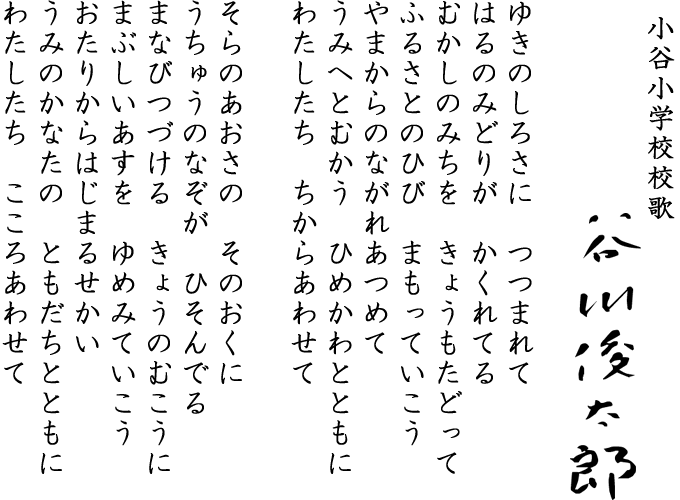 小谷小学校校歌
谷川俊太郎
ゆきのしろさに　つつまれて
はるのみどりが　かくれてる
むかしのみちを　きょうもたどって
ふるさとのひび　まもっていこう
やまからのながれあつめて
うみへとむかう　ひめかわとともに
わたしたち　ちからあわせて
そらのあおさの　そのおくに
うちゅうのなぞが　ひそんでる
まなびつづける　きょうのむこうに
まぶしいあすを　ゆめみていこう
おたりからはじまるせかい
うみのかなたの　ともだちとともに
わたしたち　こころあわせて